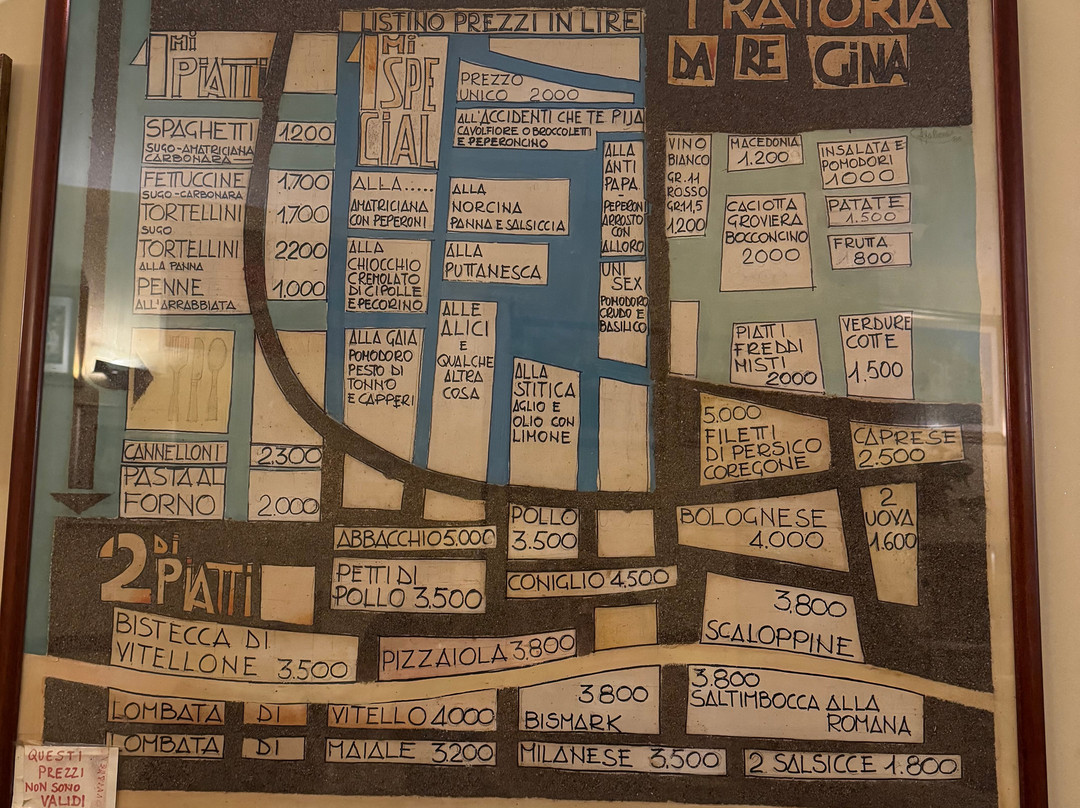 LISTINO PREZZI IN LIRE
TRATTORIA
DA RE GINA
1MI
PIATTI
SPAGHETTI 1200
SUGO-AMATRICIANA
CARBONARA
FETTUCCINE 1.700
SUGO-CARBONARA
TORTELLINI 1.700
SUGO
TORTELLINI 2200
ALLA PANNA
PENNE 1.000
ALL'ARRABBIATA
CANNELLONI 2.300
PASTA AL
FORNO 2.000
1MI
SPE
CIAL
PREZZO
UNICO 2000
ALL'ACCIDENTI CHE TE PIJA
CAVOLFIORE O BROCCOLETTI
E PEPERONCINO
ALLA......
AMATRICIANA
CON PEPERONI
ALLA
NORCINA
PANNA E SALSICCIA
ALLA
ANTI
PAPA
PEPERONI
ARROSTO
CON
ALLORO
ALLA
CHIOCCHIO
CREMOLATO
DI CIPOLLE
E PECORINO
ALLA
PUTTANESCA
UNI
SEX
POMODORO
CRUDO E
BASILICO
ALLA GAIA
POMODORO
PESTO DI
TONNO
E CAPPERI
ALLE
ALICI
E
QUALCHE
ALTRA
COSA
ALLA
STITICA
AGLIO E
OLIO CON
LIMONE
VINO
BIANCO
GR.11
ROSSO
GR.11,5
1.200
MACEDONIA
1.200
INSALATA E
POMODORI
1000
CACIOTTA
GROVIERA
BOCCONCINO
2000
PATATE
1.500
FRUTTA
800
PIATTI
FREDDI
MISTI
2000
VERDURE
COTTE
1.500
5.000
FILETTI
DI PERSICO
COREGONE
CAPRESE
2.500
2DI
PIATTI
ABBACCHIO 5.000
POLLO
3.500
BOLOGNESE
4.000
2
UOVA
1.600
PETTI DI
POLLO 3.500
CONIGLIO 4.500
3.800
SCALOPPINE
BISTECCA DI
VITELLONE 3.500
PIZZAIOLA 3.800
LOMBATA DI VITELLO 4.000
3800
BISMARK
3.800
SALTIMBOCCA ALLA
ROMANA
LOMBATA DI MAIALE 3.200
MILANESE 3.500
2 SALSICCE 1.800
QUESTI
PREZZI
NON SONO
VALIDI